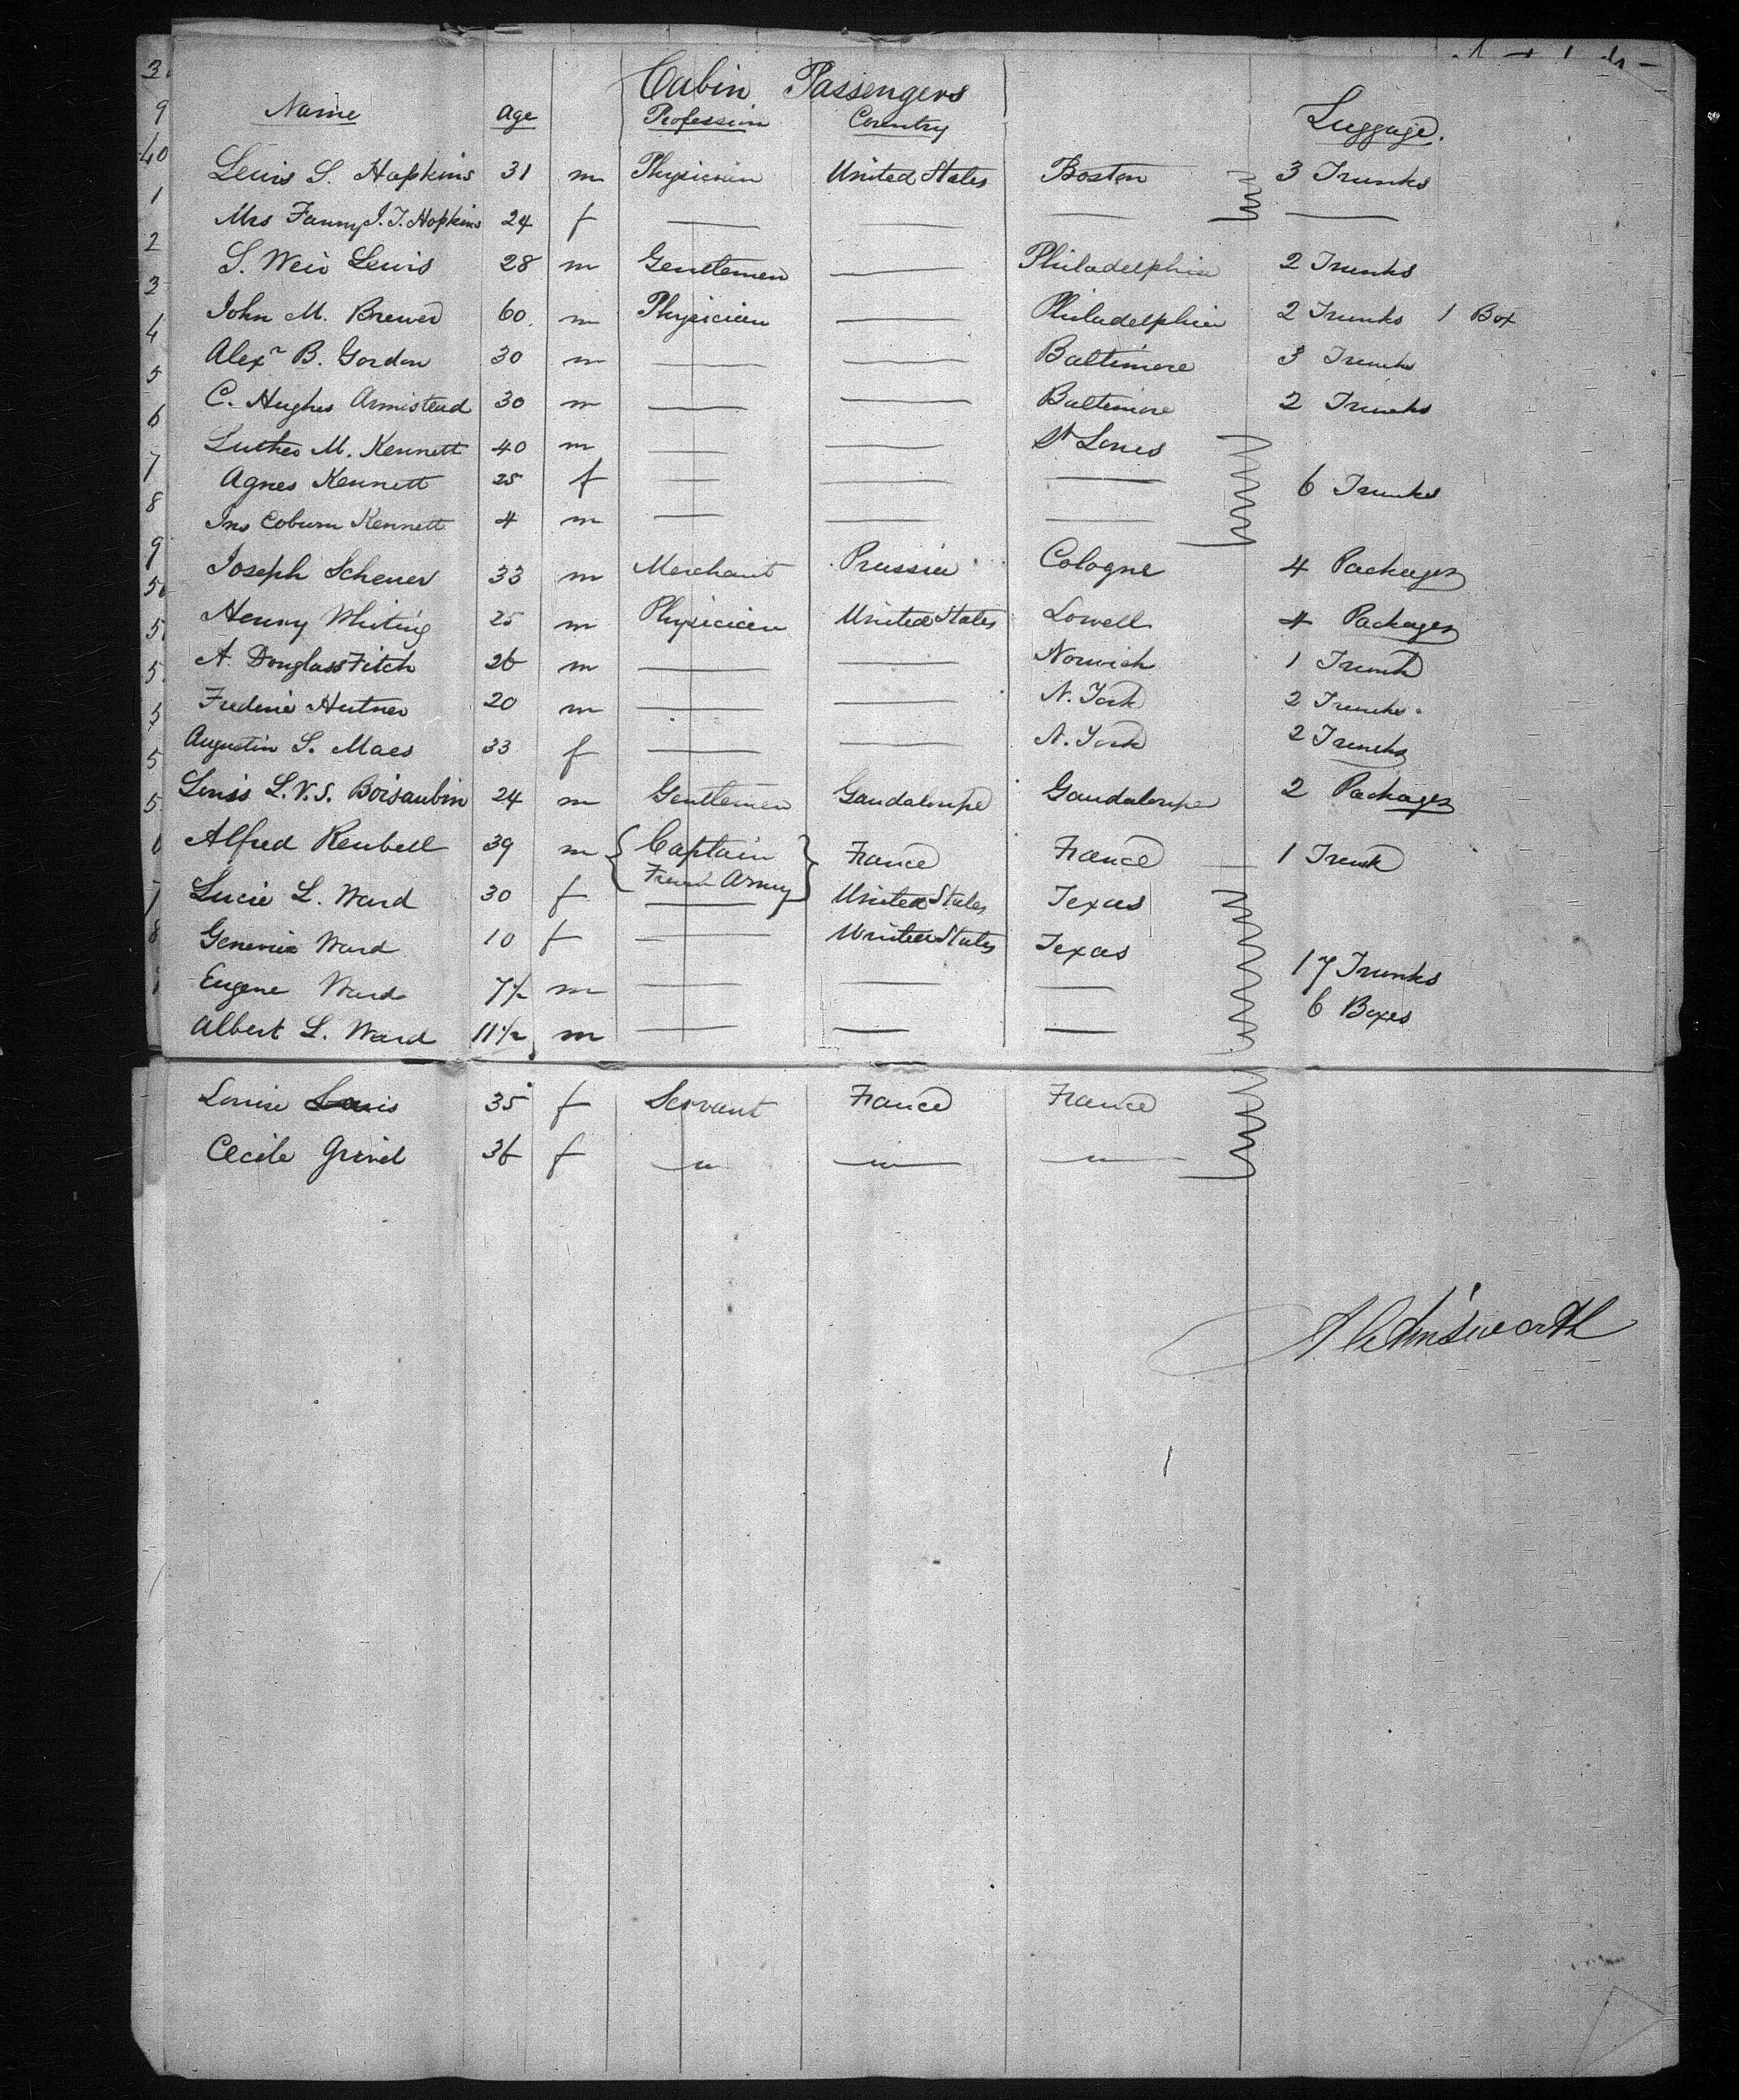 Cabin Passengers
Name Age Profession Country Luggage.
Lewis S. Hopkins 31 m Physician United States Boston 3 Trunks
Mrs Fanny J. T. Hopkins 24 f — — — —
S. Weir Lewis 28 m Gentlemen — Philadelphia 2 Trunks
John M. Brewer 60 m Physician — Philadelphia 2 Trunks 1 Box
Alexr B. Gordon 30 m — — Baltimore 3 Trunks
C. Hughes Armistead 30 m — — Baltimore 2 Trunks
Luther M. Kennett 40 m — — St Louis
Agnes Kennett 25 f — — — 6 Trunks
Jno Coburn Kennett 4 m — — —
Joseph Scheuer 33 m Merchant Prussia Cologne 4 Packages
Henry Whiting 25 m Physician United States Lowell 4 Packages
A. Douglass Fitch 26 m — — Norwich 1 Trunk
Frederic Hutner 20 m — — N. York 2 Trunks
Augustin S. Maes 33 f — — N. York 2 Trunks
Louis L. V. S. Boisaubin 24 m Gentlemen Gaudaloupe Gaudaloupe 2 Packages
Alfred Reubell 39 m Captain France France 1 Trunk
French Army
Lucie L. Ward 30 f — United States Texas
Ward 10 f — United States Texas
17 Trunks
Eugene Ward 7½ m — — —
6 Boxes
Albert L. Ward 11½ m — — —
Louise 35 f Servant France France
Cecile 36 f " " "
Ainsworth